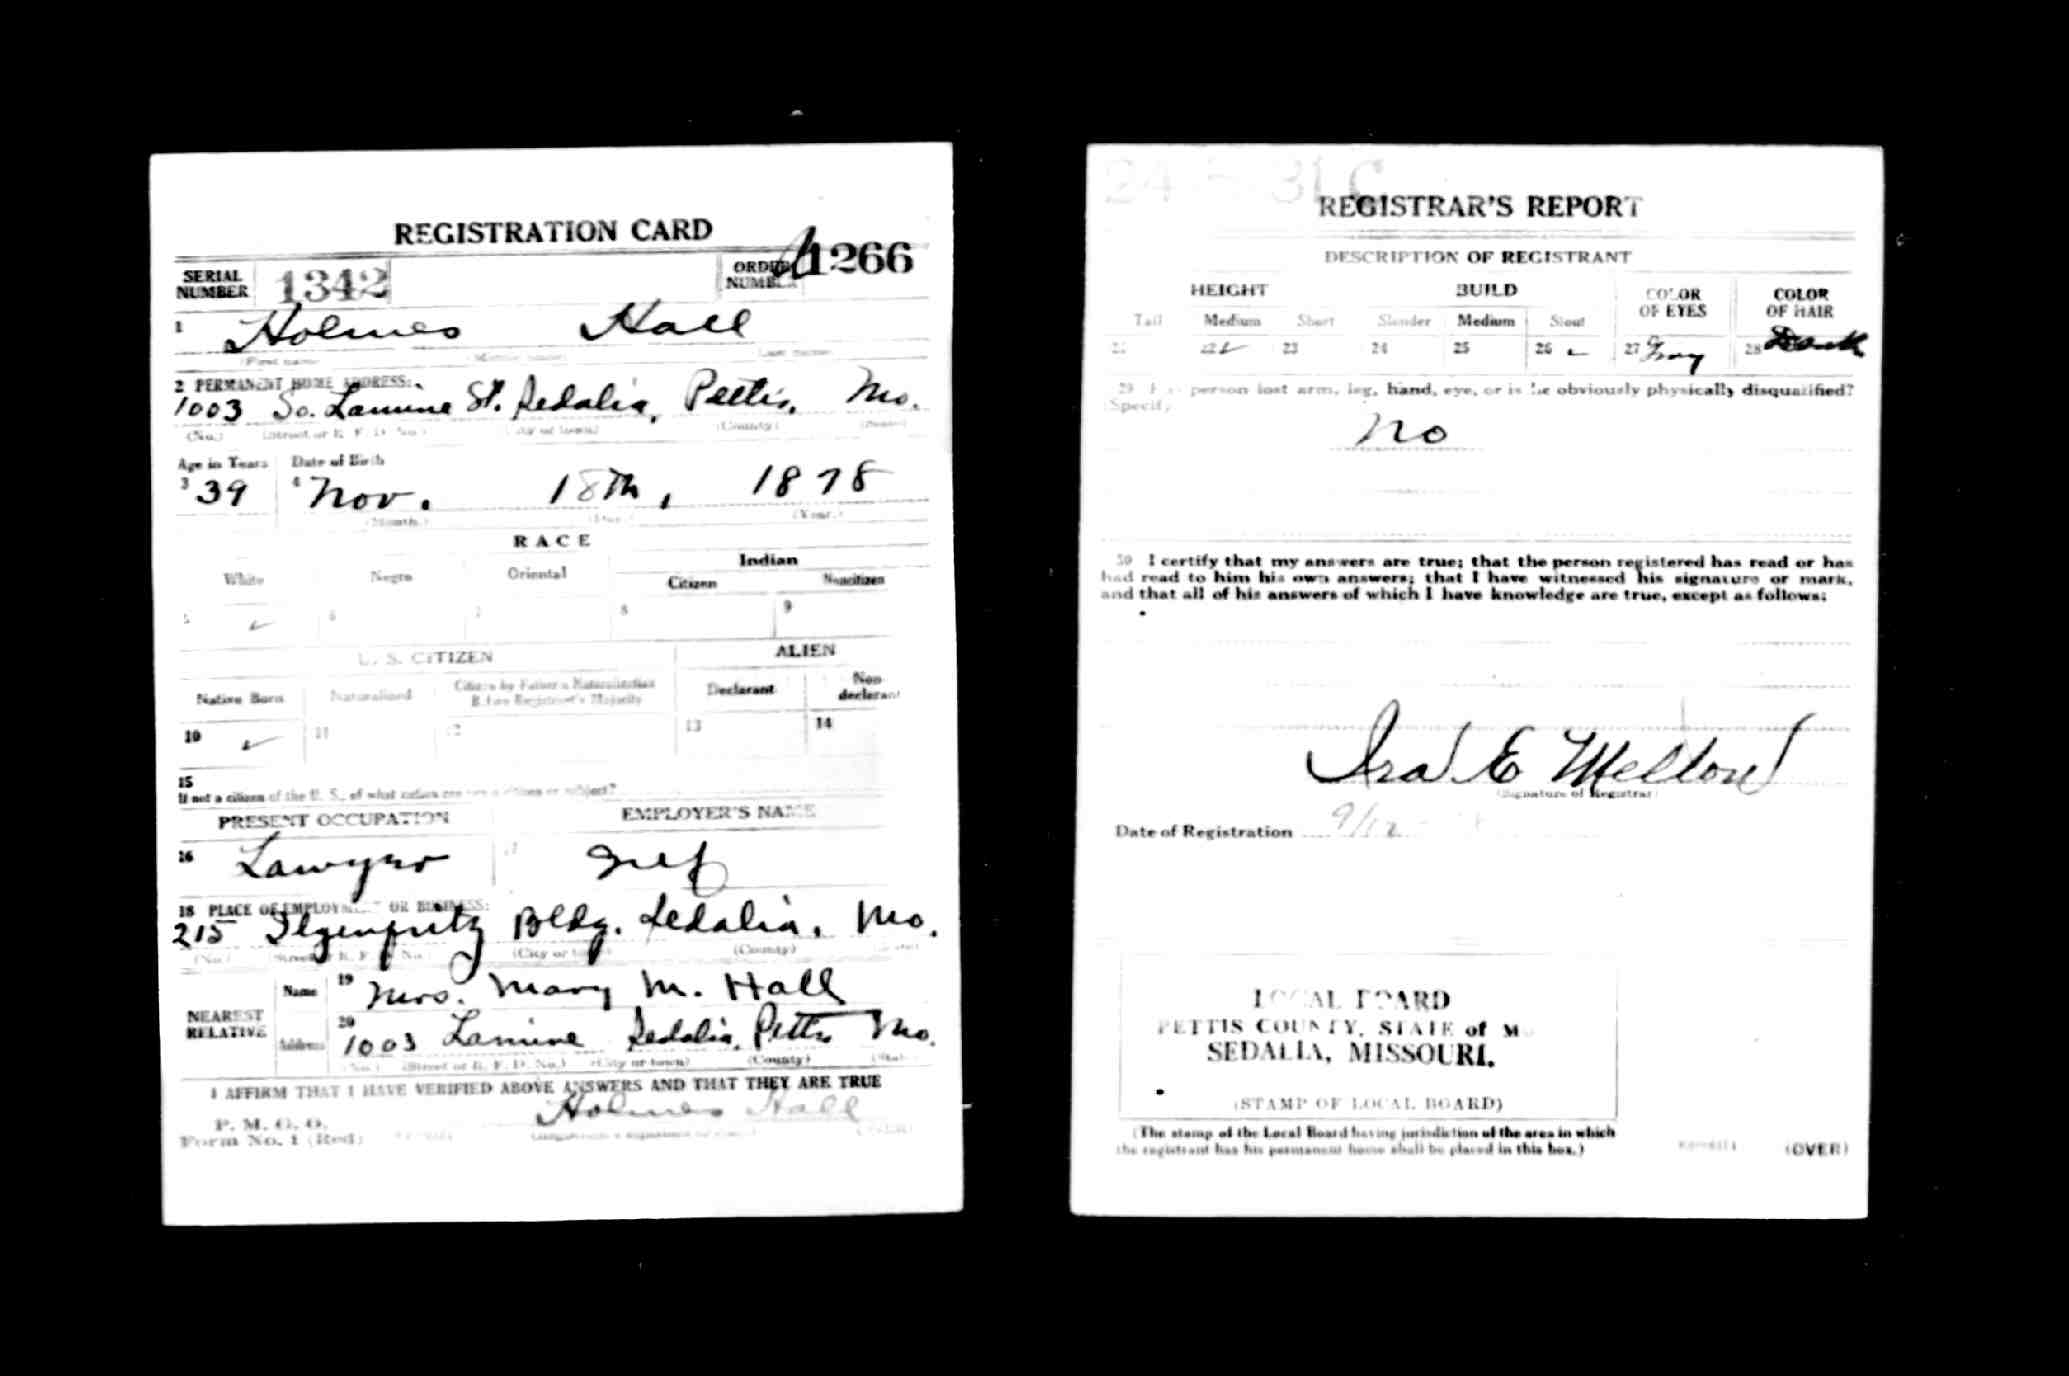 REGISTRATION CARD
SERIAL NUMBER 1342 ORDER NUMBER A1266
1 Holmes Hall
(First name) (Middle name) (Last name)
2 PERMANENT HOME ADDRESS:
1003 So. Lamine St. Sedalia, Pettis, Mo.
(No.) (Street or R. F. D. No.) (City or town) (County) (State)
Age in Years Date of Birth
3 39 4 Nov. 18th, 1878
(Month.) (Day.) (Year.)
RACE
White Negro Oriental Indian
Citizen Noncitizen
5 ✓ 6 7 8 9
U. S. CITIZEN ALIEN
Native Born Naturalized Citizen by Father's Naturalization Before Registrant's Majority Declarant Non-declarant
10 ✓ 11 12 13 14
15
If not a citizen of the U. S., of what nation are you a citizen or subject?
PRESENT OCCUPATION EMPLOYER'S NAME
16 Lawyer 17 Self
18 PLACE OF EMPLOYMENT OR BUSINESS:
215 Ilgenfritz Bldg. Sedalia, Mo.
(No.) (Street or R. F. D. No.) (City or town) (County) (State)
NEAREST RELATIVE
Name 19 Mrs. Mary M. Hall
Address 20 1003 Lamine Sedalia, Pettis Mo.
(No.) (Street or R. F. D. No.) (City or town) (County) (State)
I AFFIRM THAT I HAVE VERIFIED ABOVE ANSWERS AND THAT THEY ARE TRUE
P. M. G. O.
Form No. 1 (Red)
Holmes Hall
(Registrant's signature or mark) (OVER)
REGISTRAR'S REPORT
DESCRIPTION OF REGISTRANT
HEIGHT BUILD COLOR OF EYES COLOR OF HAIR
Tall Medium Short Slender Medium Stout
21 22 ✓ 23 24 25 26 ✓ 27 Gray 28 Dark
29 Has person lost arm, leg, hand, eye, or is he obviously physically disqualified?
(Specify)
No
30 I certify that my answers are true; that the person registered has read or has
had read to him his own answers; that I have witnessed his signature or mark,
and that all of his answers of which I have knowledge are true, except as follows:
Ira E Mellon
(Signature of Registrar)
Date of Registration 9/12
LOCAL BOARD
PETTIS COUNTY, STATE of MO
SEDALIA, MISSOURI.
(STAMP OF LOCAL BOARD)
(The stamp of the Local Board having jurisdiction of the area in which
the registrant has his permanent home shall be placed in this box.)
(OVER)